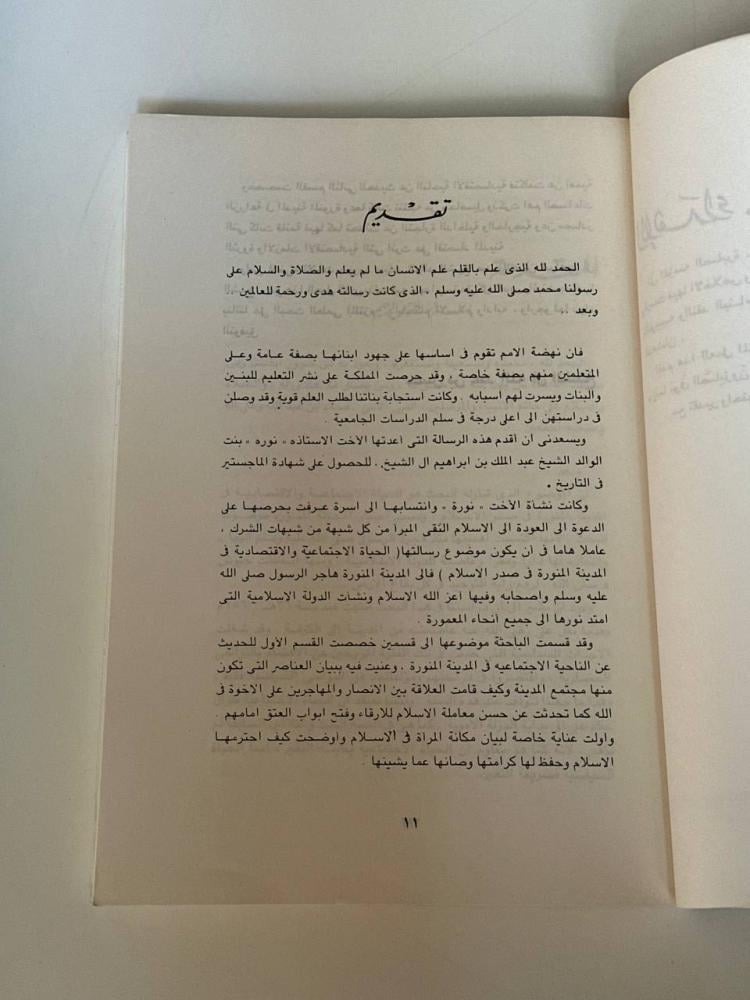 تقديم
الحمد لله الذى علم بالقلم علم الانسان ما لم يعلم والصلاة والسلام على
رسولنا محمد صلى الله عليه وسلم ، الذى كانت رسالته هدى ورحمة للعالمين ..
وبعد ..
فان نهضة الامم تقوم فى اساسها على جهود ابنائها بصفة عامة وعلى
المتعلمين منهم بصفة خاصة ، وقد حرصت المملكة على نشر التعليم للبنين
والبنات ويسرت لهم أسبابه . وكانت استجابة بناتنا لطلب العلم قوية وقد وصلن
فى دراستهن الى اعلى درجة فى سلم الدراسات الجامعية .
ويسعدنى ان أقدم هذه الرسالة التى أعدتها الأخت الاستاذه « نوره » بنت
الوالد الشيخ عبد الملك بن ابراهيم ال الشيخ . للحصول على شهادة الماجستير
فى التاريخ .
وكانت نشأة الأخت « نورة » وانتسابها الى اسرة عرفت بحرصها على
الدعوة الى العودة الى الاسلام النقى المبرأ من كل شبهة من شبهات الشرك ،
عاملا هاما فى ان يكون موضوع رسالتها ( الحياة الاجتماعية والاقتصادية فى
المدينة المنورة فى صدر الاسلام ) فالى المدينة المنورة هاجر الرسول صلى الله
عليه وسلم واصحابه وفيها أعز الله الاسلام ونشأت الدولة الاسلامية التى
امتد نورها الى جميع أنحاء المعمورة .
وقد قسمت الباحثة موضوعها الى قسمين خصصت القسم الأول للحديث
عن الناحية الاجتماعيه فى المدينة المنورة ، وعنيت فيه ببيان العناصر التى تكون
منها مجتمع المدينة وكيف قامت العلاقة بين الانصار والمهاجرين على الاخوة فى
الله كما تحدثت عن حسن معاملة الاسلام للارقاء وفتح ابواب العتق امامهم .
واولت عناية خاصة لبيان مكانة المرأة فى الاسلام واوضحت كيف احترمها
الاسلام وحفظ لها كرامتها وصانها عما يشينها .
١١